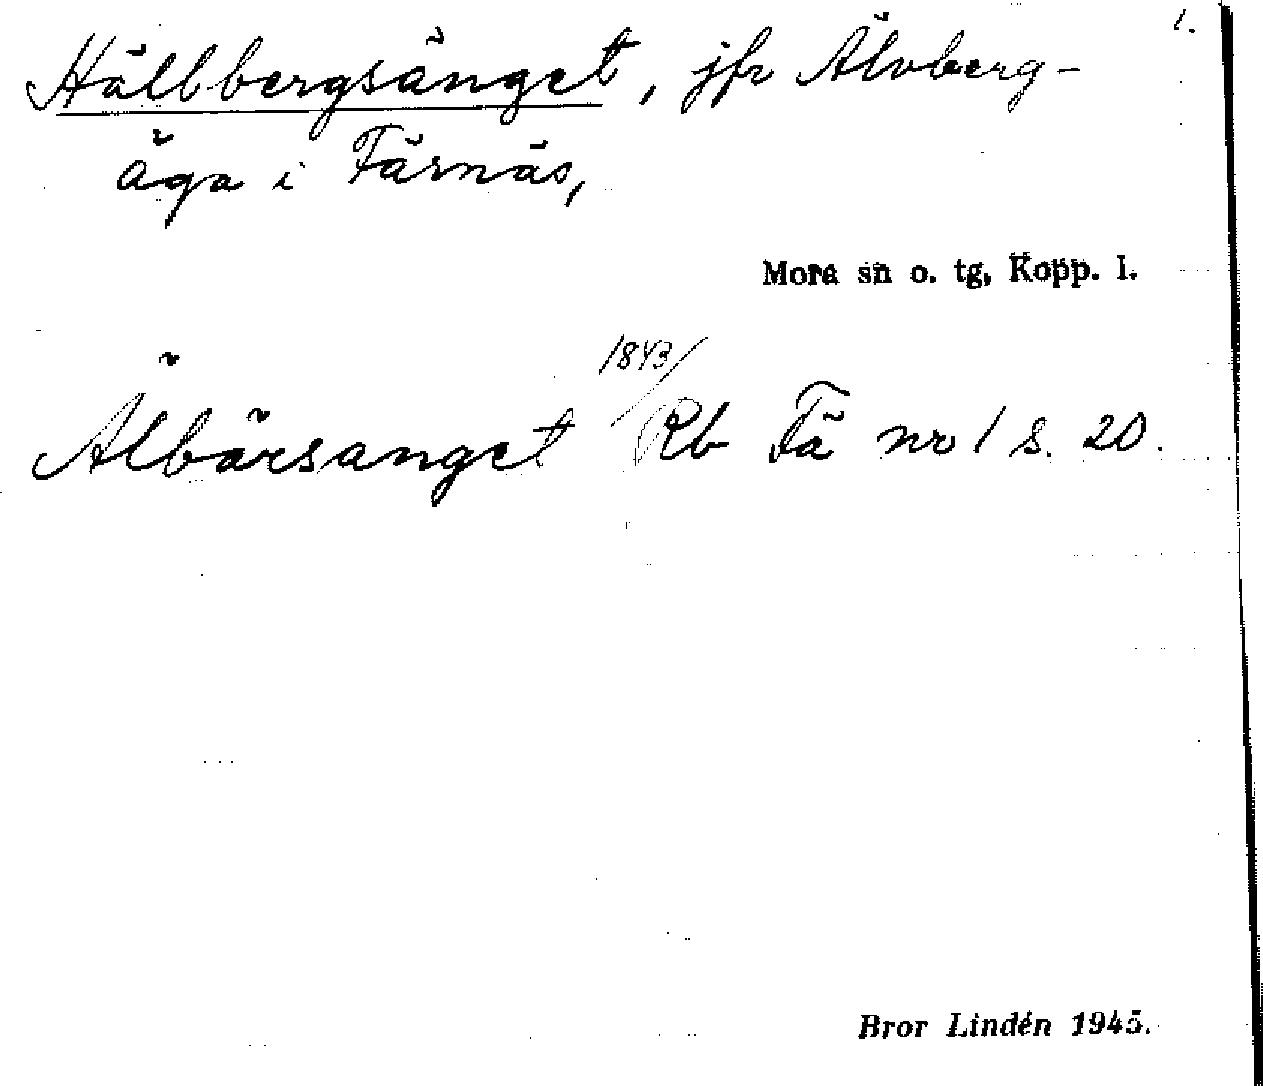 1.
Hällbergsänget, jfr Älvberg-
äga i Färnäs,
Mora sn o. tg, Kopp. l.
1843/
Älbärsanget Rb Fä nr 1 s. 20.
Bror Lindén 1945.